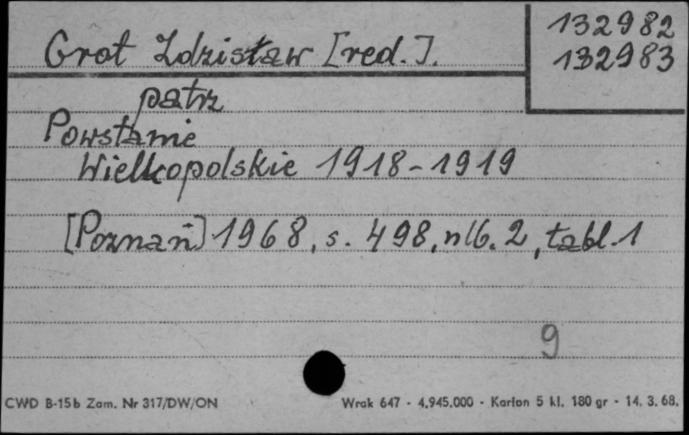 132982
132983
Grot Zdzisław [red.].
patrz
Powstanie
Wielkopolskie 1918-1919
[Poznań] 1968, s. 498, nlb. 2, tabl. 1
9
CWD B-15b Zam. Nr 317/DW/ON Wrak 647 - 4.945.000 - Karton 5 kl. 180 gr - 14. 3. 68.